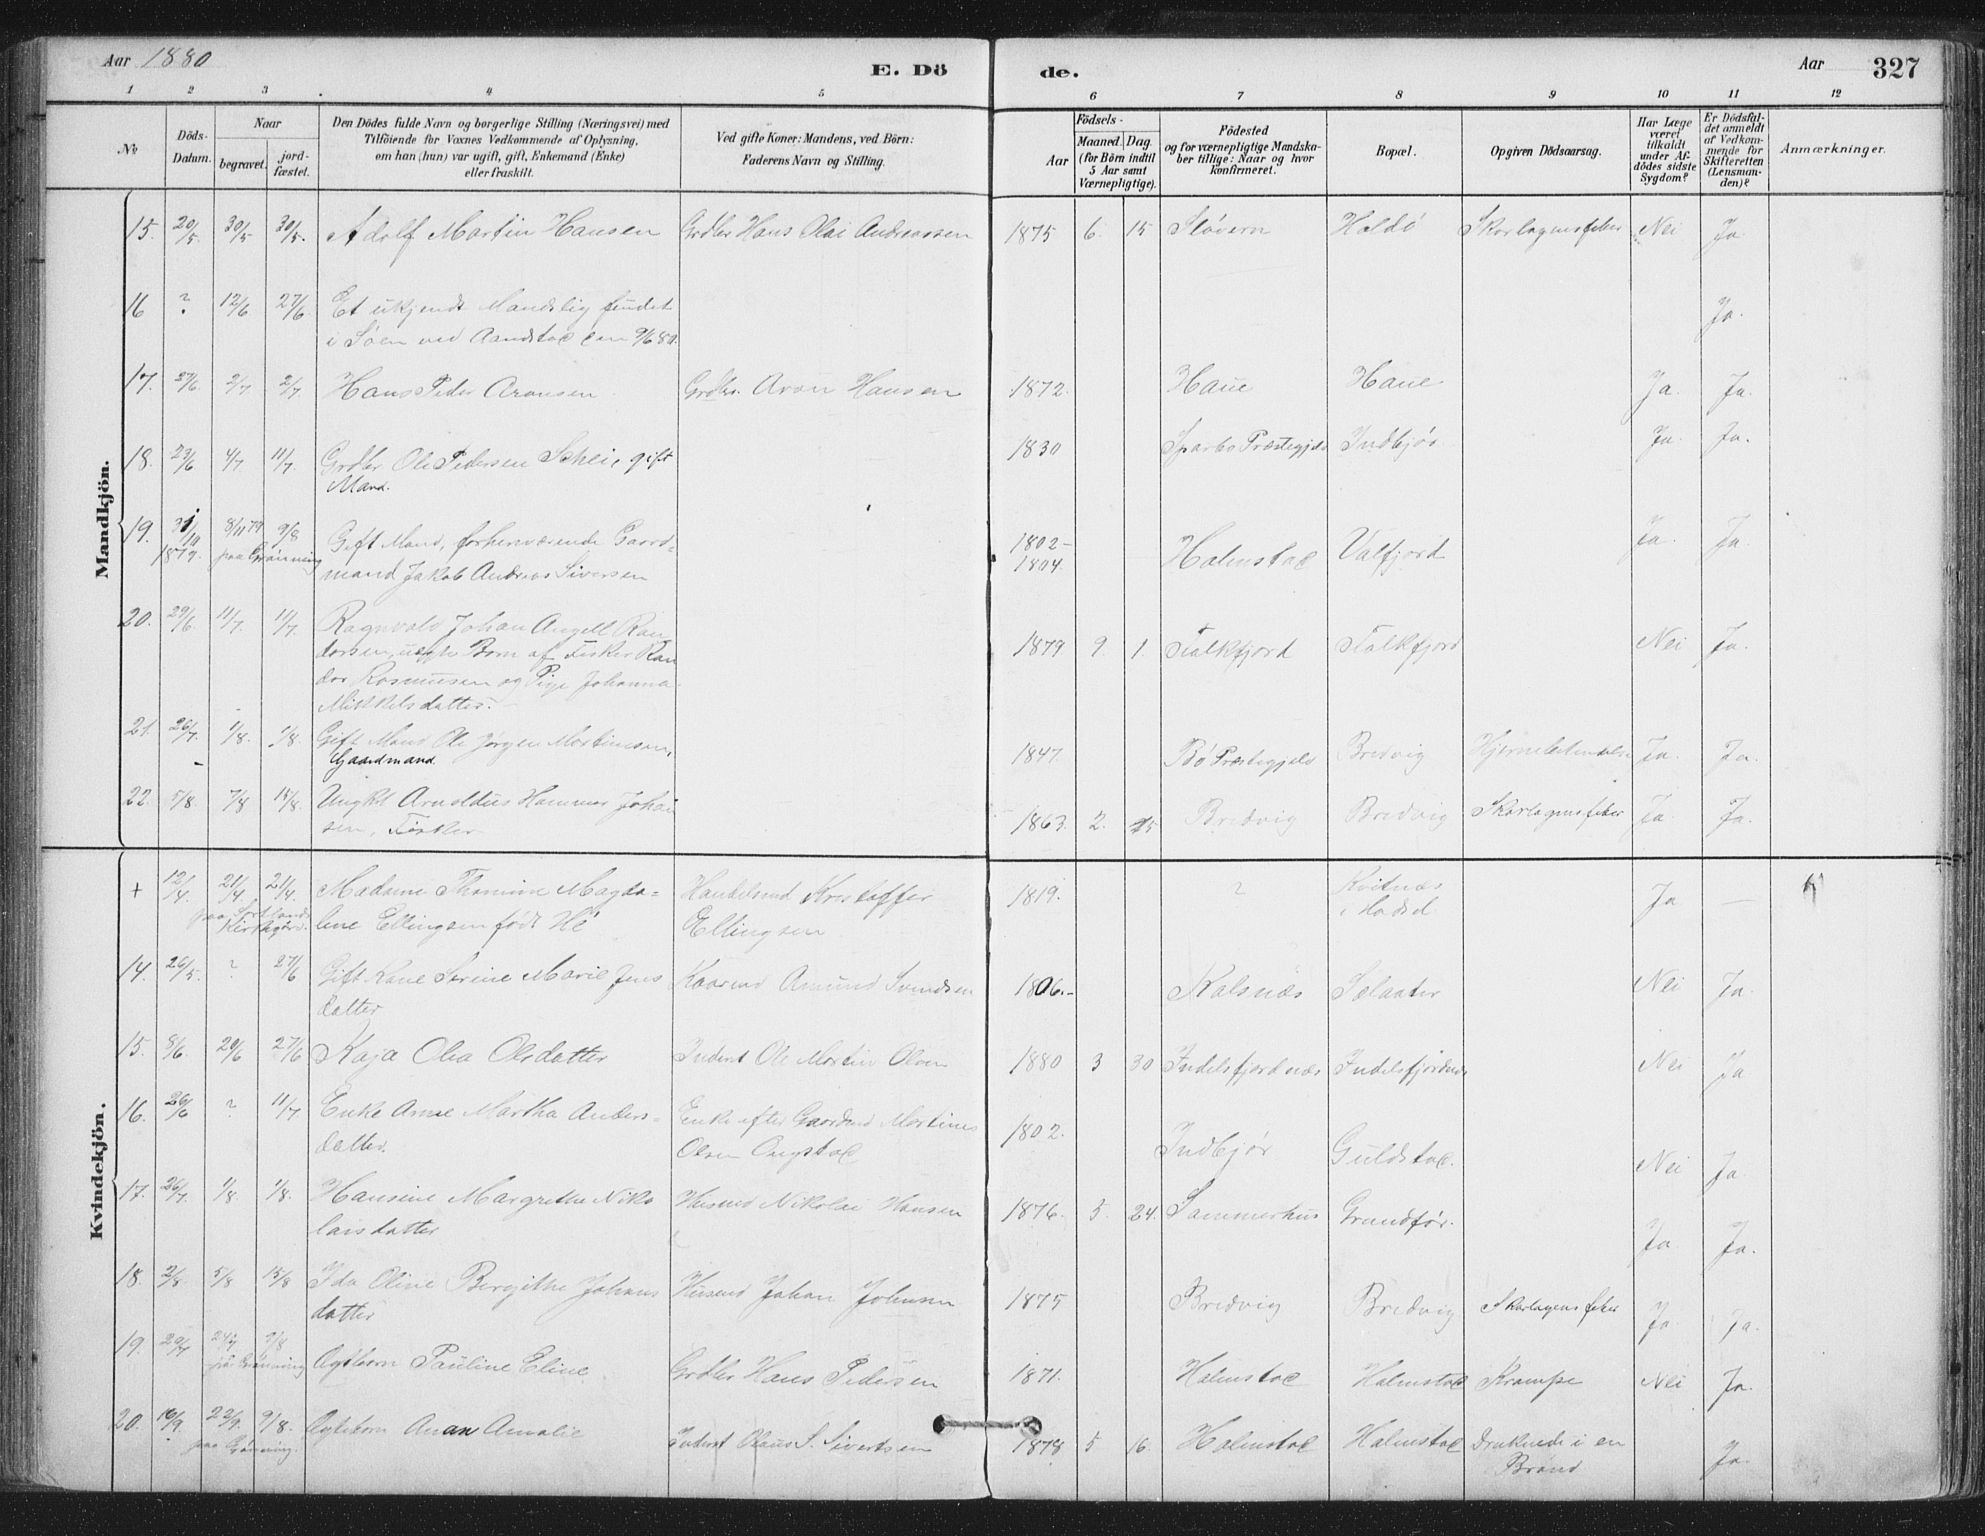 Aar 1880 E. Dö de. Aar 327
1 2 3 4 5 6 7 8 9 10 11 12
No
Döds-Datum.
Naar
begravet.
jord-fæstet.
Den Dödes fulde Navn og borgerlige Stilling (Næringsvei) med
Tilföiende for Voxnes Vedkommende af Oplysning,
om han (hun) var ugift, gift, Enkemand (Enke)
eller fraskilt.
Ved gifte Koner: Mandens, ved Börn:
Faderens Navn og Stilling.
Födsels-
Aar
Maaned. Dag.
(for Börn indtil
5 Aar samt
Værnepligtige).
Födested
og for værnepligtige Mandska-
ber tillige: Naar og hvor
konfirmeret.
Bopæl.
Opgiven Dödsaarsag.
Har Læge
været
tilkaldt
under Af-
dödes sidste
Sygdom?
Er Dödsfal-
det anmeldt
af Vedkom-
mende for
Skifteretten
(Lensman-
den)?
Anmærkninger.
Mandkjön.
15. 20/5. 30/5 30/5. Adolf Martin Hansen Grdbr Hans Olai Andreassen 1875 6. 15 Sløvern Haldø Skarlagensfeber Nei Ja.
16 ? 12/6 27/6. Et ukjendt Mandslig fundet
i Søen ved 9/6 80. Ja.
17. 27/6. 2/7 2/7. Hans Peder Aronsen Grdbr. Aron Hansen 1872. Haue Haue Ja. Ja.
18. 23/6 4/7 11/7. Grdbr Ole Pedersen Schei, gift
Mand. 1830 Sparbo Præstegjeld Indbjør Ja. Ja.
19. 31/10 1879. 8/11 79 paa Grønning 9/8 Gift Mand, forhenværende Gaard-
mand Jakob Andreas Siversen 1802-
1804. Halmstad Valfjord Ja. Ja.
20. 29/6. 11/7. 11/7. Ragnvald Johan Angell Ran
dorsen, uægte Barn af Fisker Ran
dor Rasmussen og Pige Johanna
Mikkelsdatter. 1879 9. 1. Falkfjord Falkfjord Nei Ja.
21. 26/7. 1/8. 1/8. Gift Mand Ole Jørgen Martinussen,
Gaardmand 1847. Bø Præstegjeld Bredvig Hjernebetændelse Ja. Ja.
22. 5/8. 7/8 15/8. Ungkl Arnoldus Hammer Johan
sen, Fisker 1863. 2. 15 Bredvig Bredvig Skarlagensfeber Ja. Ja.
Kvindekjön.
+ 12/4. 21/4 paa Sortlands Kirkegård. 21/4. Madame Thomine Magda-
lene Ellingsen født Hé Handelsmd Kristoffer
Ellingsen 1819. ? Kvitnæs
i Hadsel Ja —
14. 26/5. ? 27/6 Gift Kone Serine Marie Jens
datter Kaarmd Amund Svendsen 1806.- Kalsnæs Selaater Nei Ja.
15. 8/6. 20/6 27/6 Kaja Olea Olsdatter Inderst Ole Martin Olsen 1880 3 30 Indelsfjordnæs Indelsfjordnæs Nei Ja
16. 26/6 ? 11/7 Enke Anne Martha Anders-
datter. Enke efter Gaardmd Martines
Olsen 1802. Indbjør Guldstad. Nei Ja.
17. 26/7. 1/8. 1/8. Hansine Margrethe Niko
laisdatter Husmd Nikolai Hansen 1876. 5. 24. Sommerhus Grundfør. Ja Ja.
18. 2/8. 5/8 15/8 Ida Oline Bergithe Johans
datter Husmd Johan Johnsen 1875 Bredvig Bredvig Skarlagensfeber Ja Ja.
19. paa Grønning 9/8 Pauline Eline Grdbr Hans Pedersen 1871. Halmstad Halmstad Krampe Nei Ja.
20. 16/9. 22/9. paa Grønning. 9/8. Amalie Inderst Olaus S. Sivertsen 1878 5 16. Halmstad Halmstad Druknede i en
Brønd Ja.